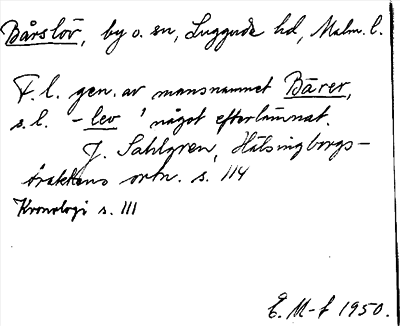 Bårslöv, by o. sn, Luggude hd, Malm. l.
F. l. gen. av mansnamnet Bārer,
s. l. -lev 'något efterlämnat.
J. Sahlgren, Hälsingborgs-
traktens ortn. s. 114
Kronologi s. 111
E. M-f 1950.